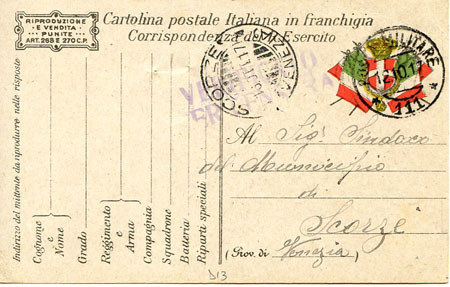 RIPRODUZIONE
E VENDITA
PUNITE
ART. 268 E 270 C.P.
Cartolina postale Italiana in franchigia
Corrispondenza del R. Esercito
SCORZÈ
VENEZIA
MILITARE
12.10.17
111
Al Sig. Sindaco
del Municipio
di
Scorzè
(Prov. di Venezia)
Indirizzo del mittente da riprodurre nelle risposte
Cognome e Nome
Grado
Reggimento e Arma
Compagnia
Squadrone
Batteria
Riparti speciali
D13